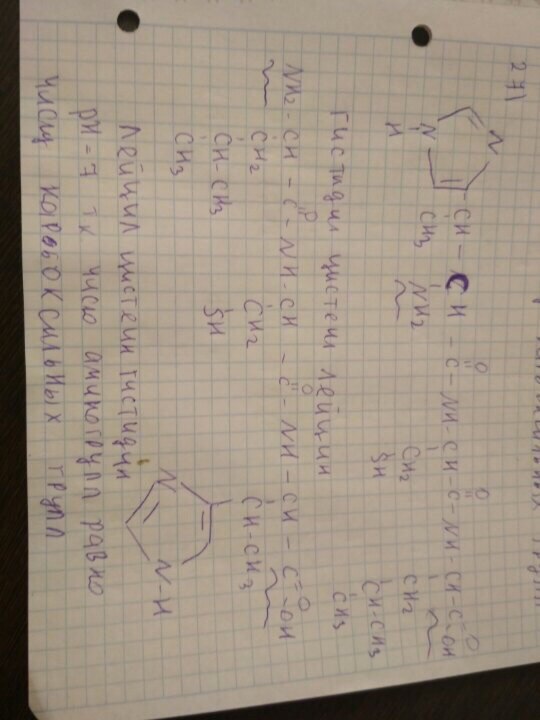 27)
N O O O
CH - CH - C - NH - CH - C - NH - CH - C - OH
N CH3 NH2 CH2 CH2
H SH CH - CH3
CH3
Гистидил цистеил Лейцин
O O O
NH2 - CH - C - NH - CH - C - NH - CH - C - OH
CH2 CH2 CH - CH3
CH - CH3 SH
CH3 N N - H
Лейцил цистеил гистидин
pH = 7 тк число аминогрупп равно
числу карбоксильных групп